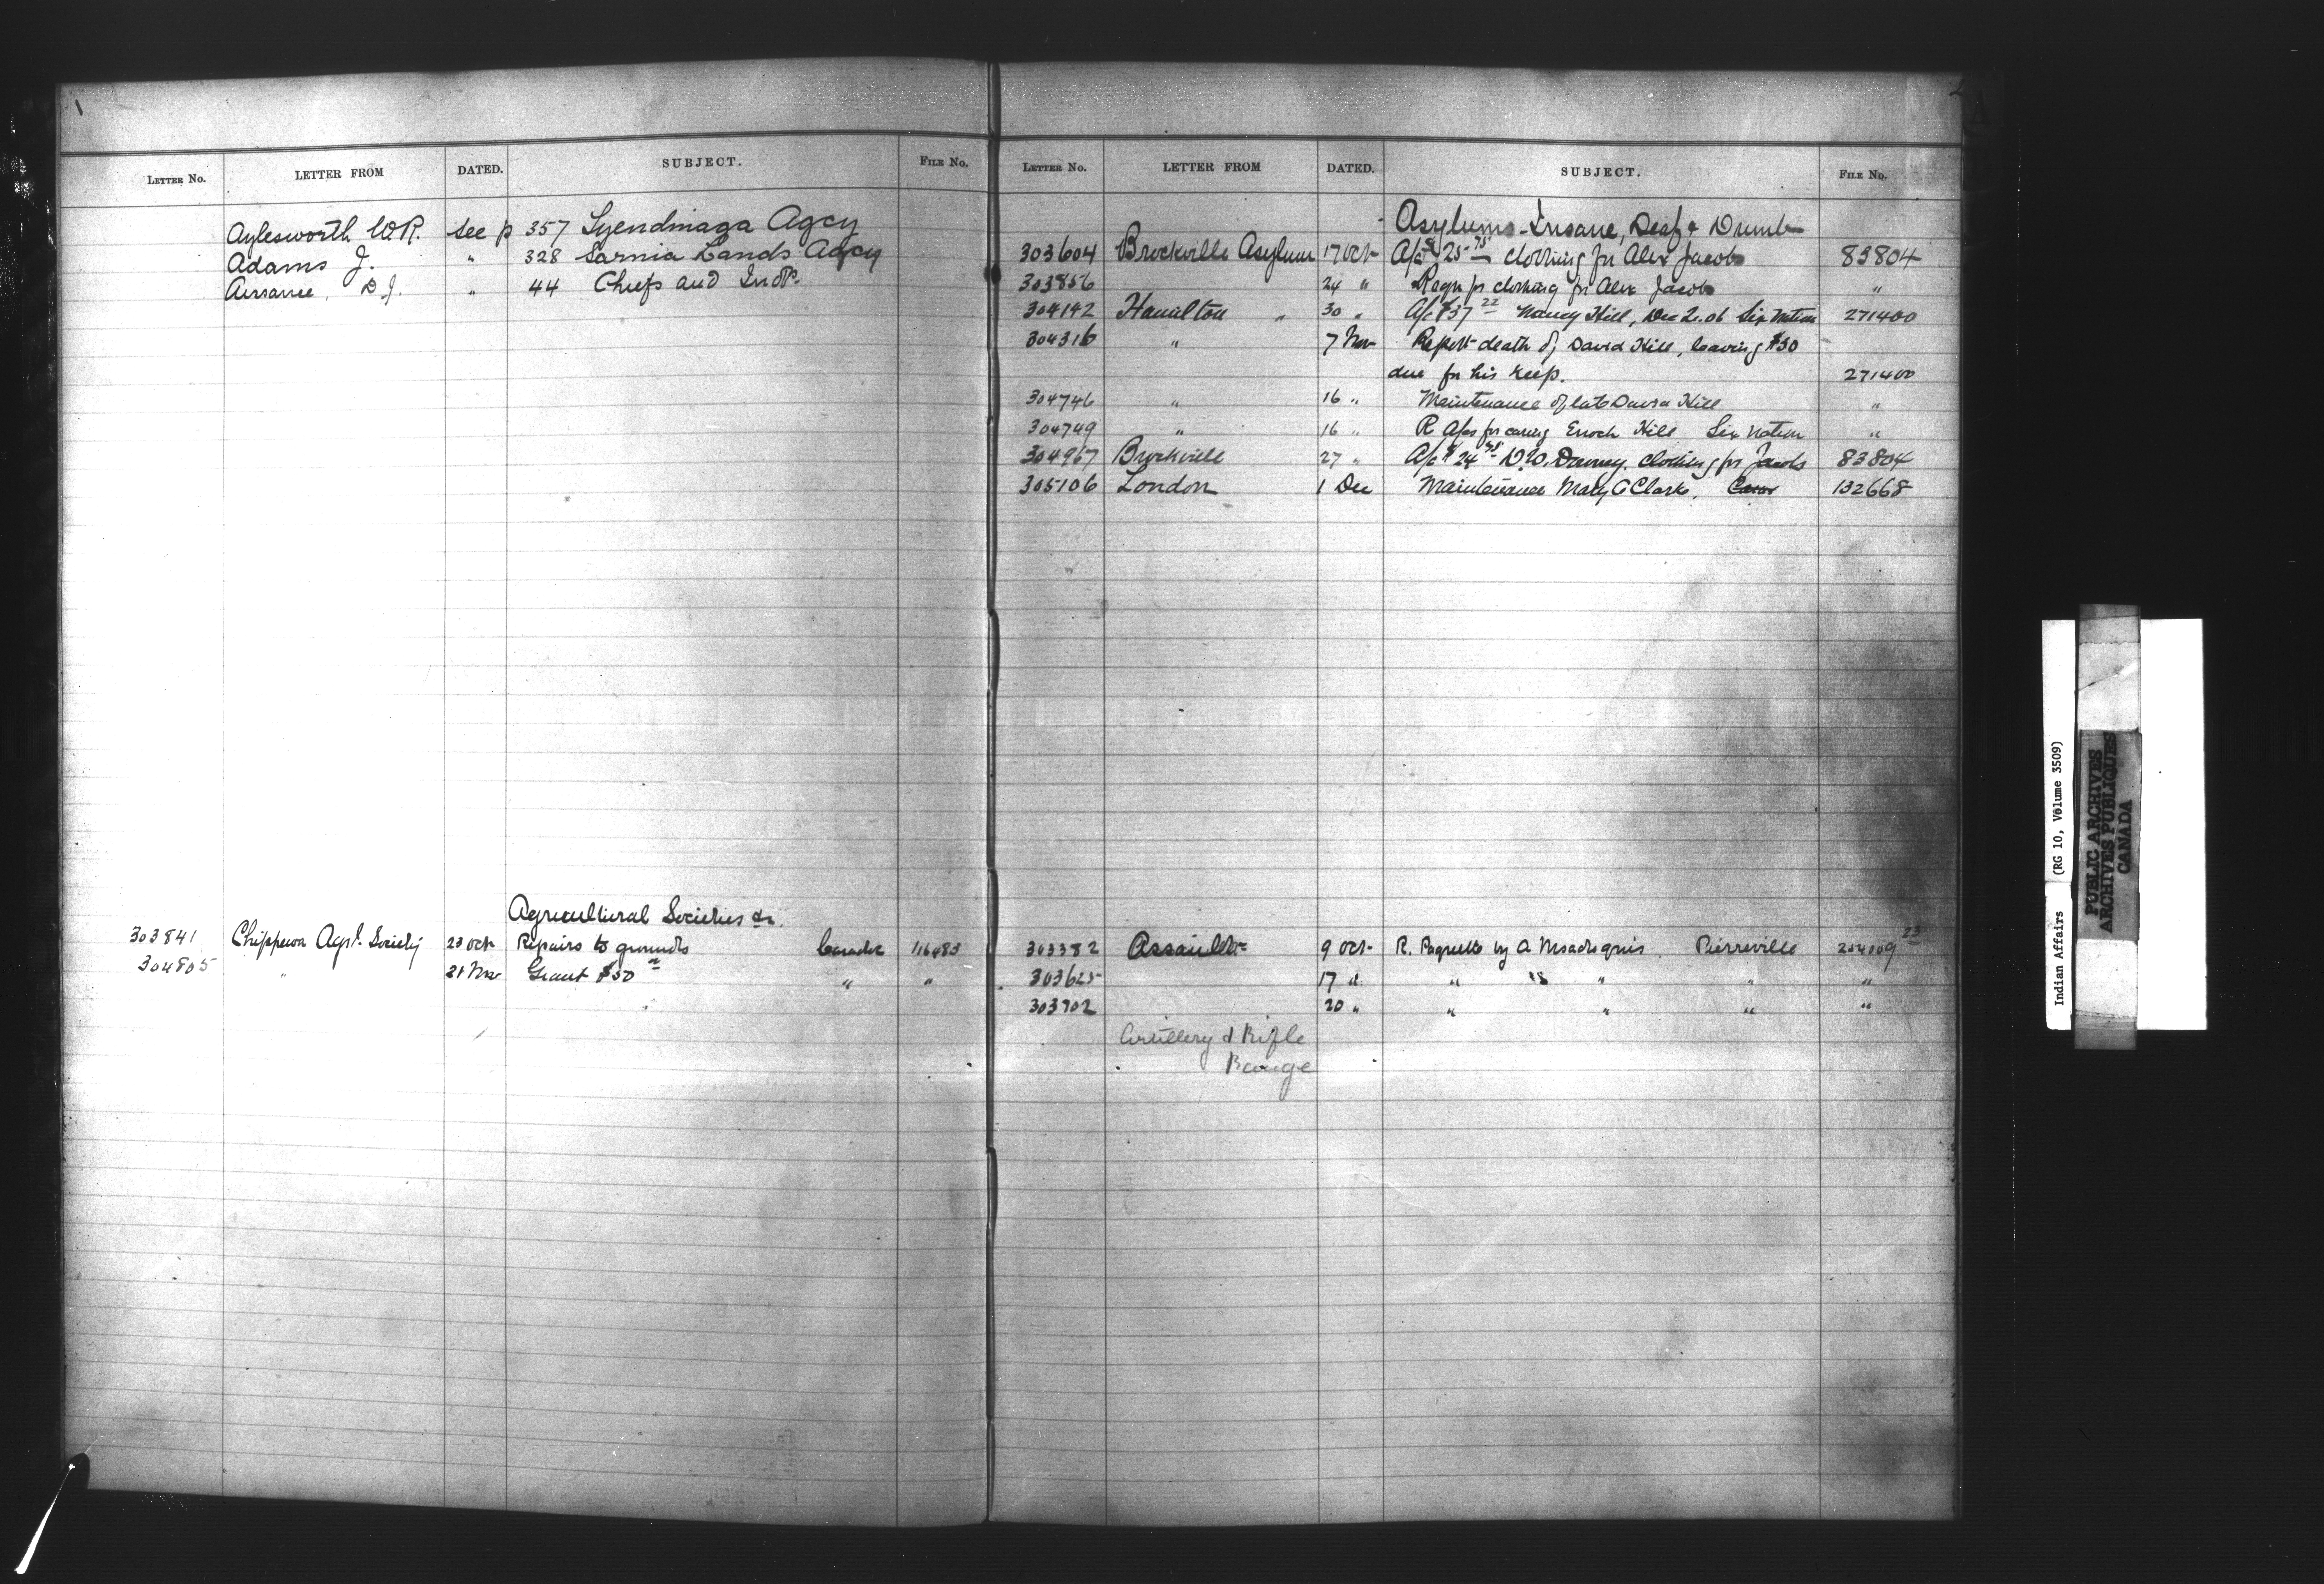 1
LETTER NO. LETTER FROM DATED. SUBJECT. FILE NO.
Aylesworth W.R. See p 357 Tyendinaga Agcy
Adams J. " 328 Sarnia Lands Agcy
Assance, D.J. " 44 Chiefs and
Agricultural Societies &c.
303841 Chippewa Agrl. Society 23 Oct Repairs to grounds Caradoc 116483
304805 " 21 Nov Grant $50 " "
2
LETTER NO. LETTER FROM DATED. SUBJECT. FILE NO.
Asylums - Insane, Deaf & Dumb
303604 Brockville Asylum 17 Oct A/c $25 75 clothing for Alex Jacobs 83804
303856 24 " Reqn for clothing for Alex Jacobs "
304142 Hamilton " 30 " A/c $37 22 Nancy Hill, Six Nation 271400
304316 " 7 Nov Report death of David Hill, leaving $30
due for his keep. 271400
304746 " 16 " Maintenance of late David Hill "
304749 " 16 " R A/cs for caring Enoch Hill Six Nation "
304967 Brockville 27 " A/c $24 D.W. Downey. clothing for Jacobs 83804
305106 London 1 Dec Maintenance Mary C Clark. 132668
303382 Assaults 9 Oct R. Paquette by A Msadoquis. Pierreville 254009 23
303625 17 " " " " " "
303702 20 " " " " "
Artillery & Rifle
Range
Indian Affairs (RG 10, Volume 3509)
PUBLIC ARCHIVES
ARCHIVES PUBLIQUES
CANADA